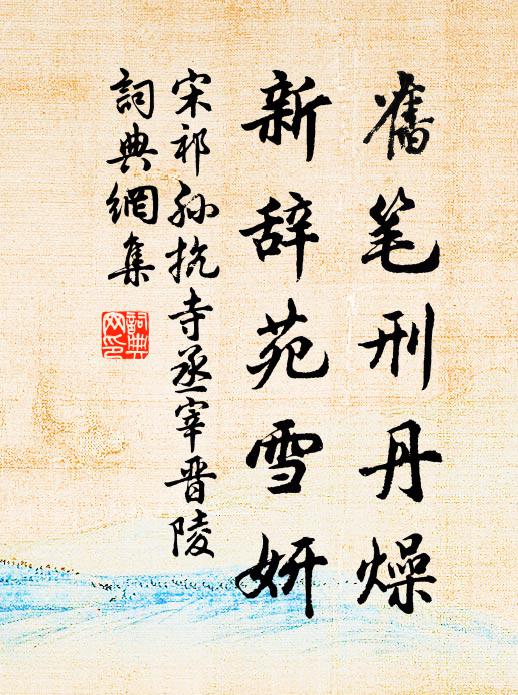 舊笔刑丹燥
新辞苑雪妍
宋祁孙抗寺丞宰晋陵
詞典網集
詞典网印